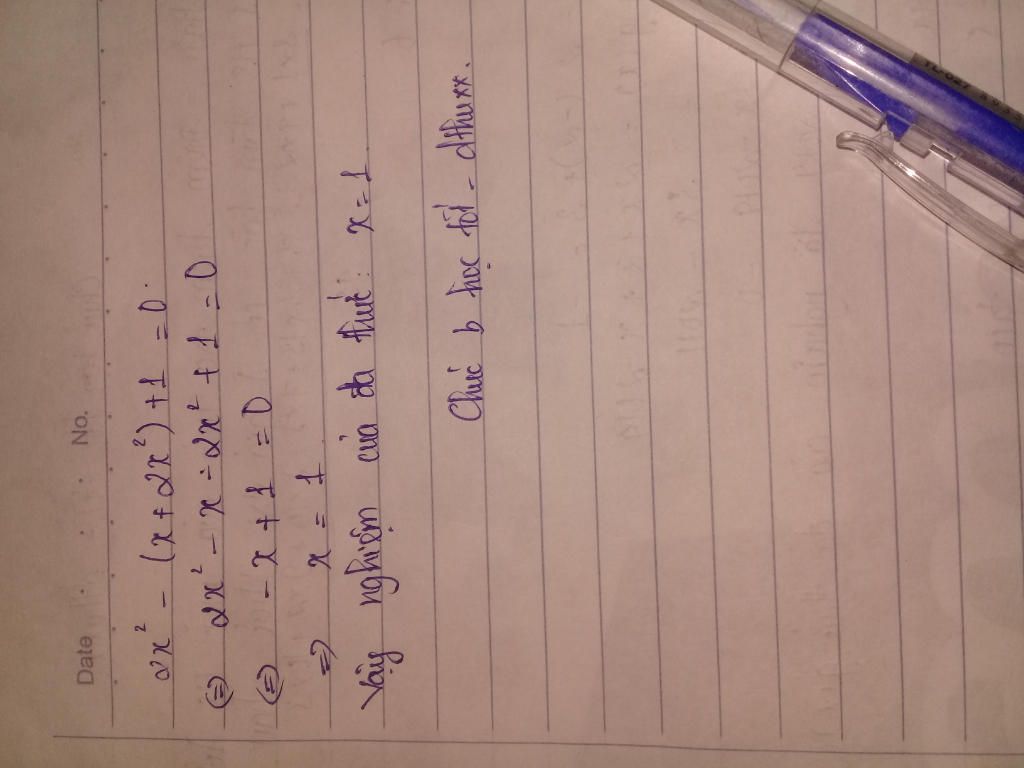 Date No.
2x² - (x + 2x²) + 1 = 0.
(=) 2x² - x - 2x² + 1 = 0
(=) - x + 1 = 0
=) x = 1
Vậy nghiệm của đa thức: x = 1
Chúc b học tốt - dthuxx.